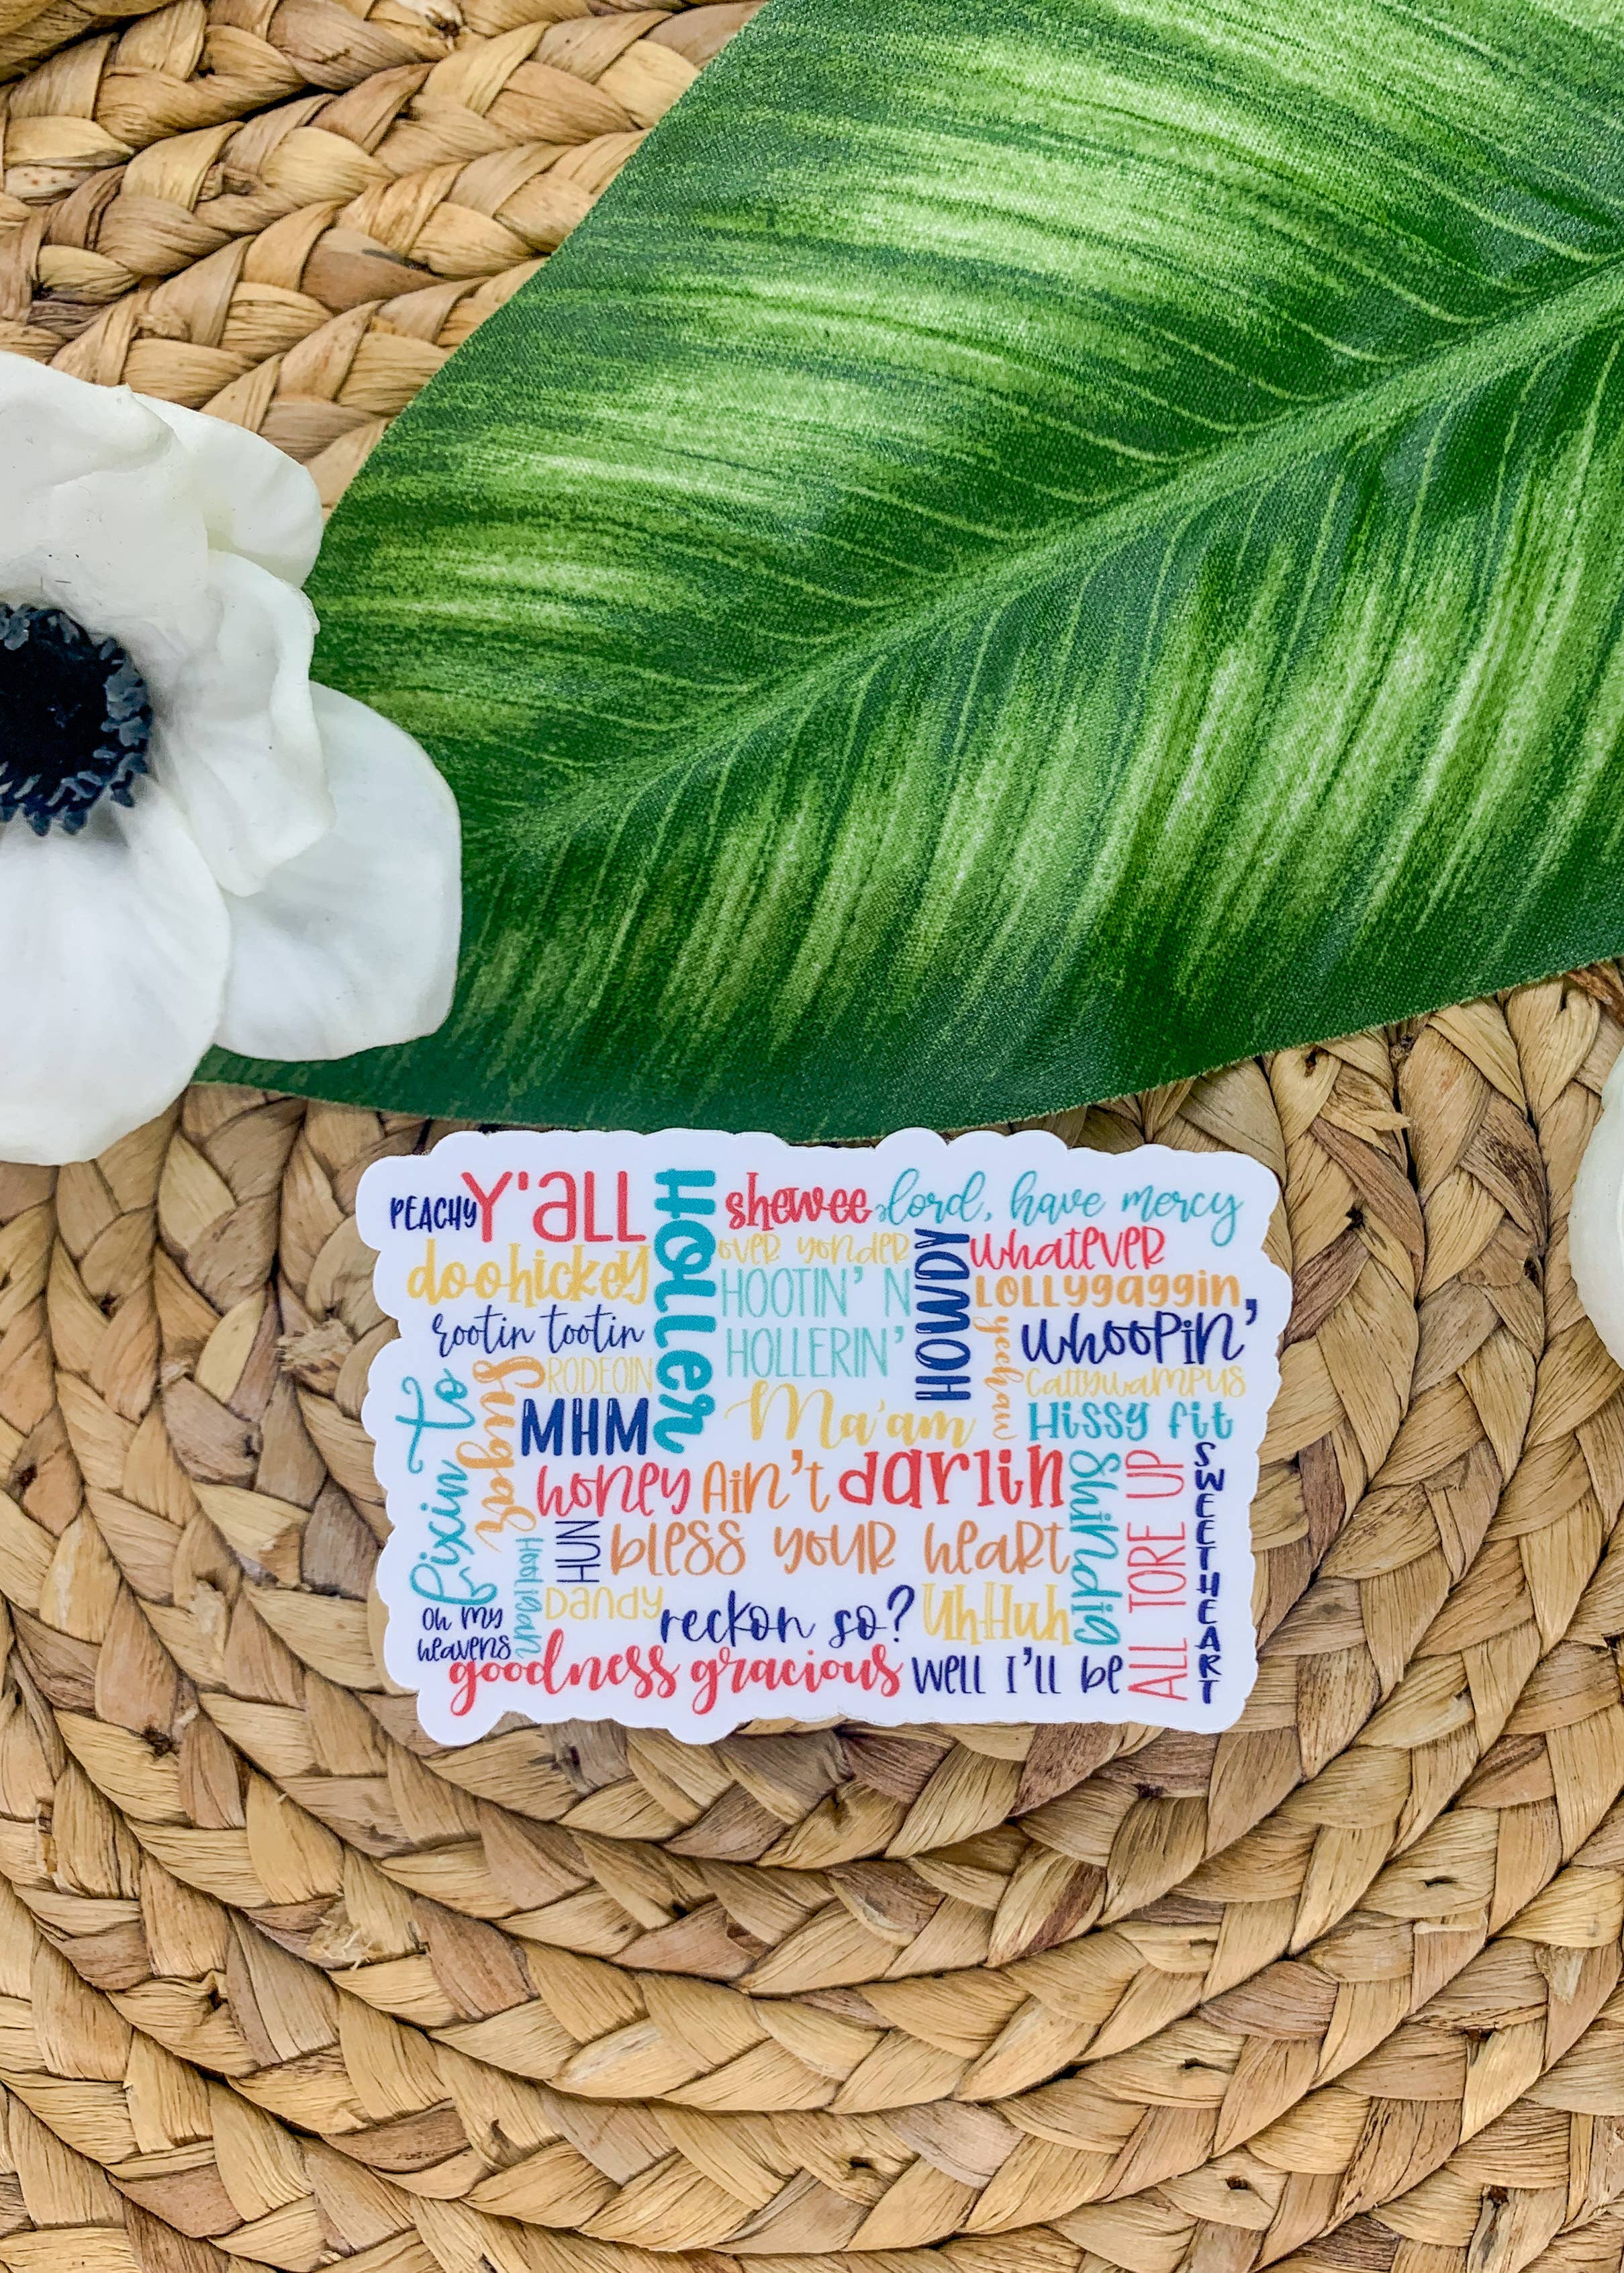 PEACHY
Y'all
Holler
shewee
lord, have mercy
doohickey
over yonder
HOWDY
whatever
HOOTIN' N
HOLLERIN'
Lollygaggin,
rootin tootin
yeehaw
whoopin'
Sugar
RODEOIN
Cattywampus
Pixin to
MHM
Ma'am
Hissy fit
honey
Ain't
darlin
Shindig
ALL TORE UP
SWEETHEART
Hooligan
HUN
bless your heart
Oh my
heavens
Dandy
reckon so?
UhHuh
goodness gracious
well I'll be